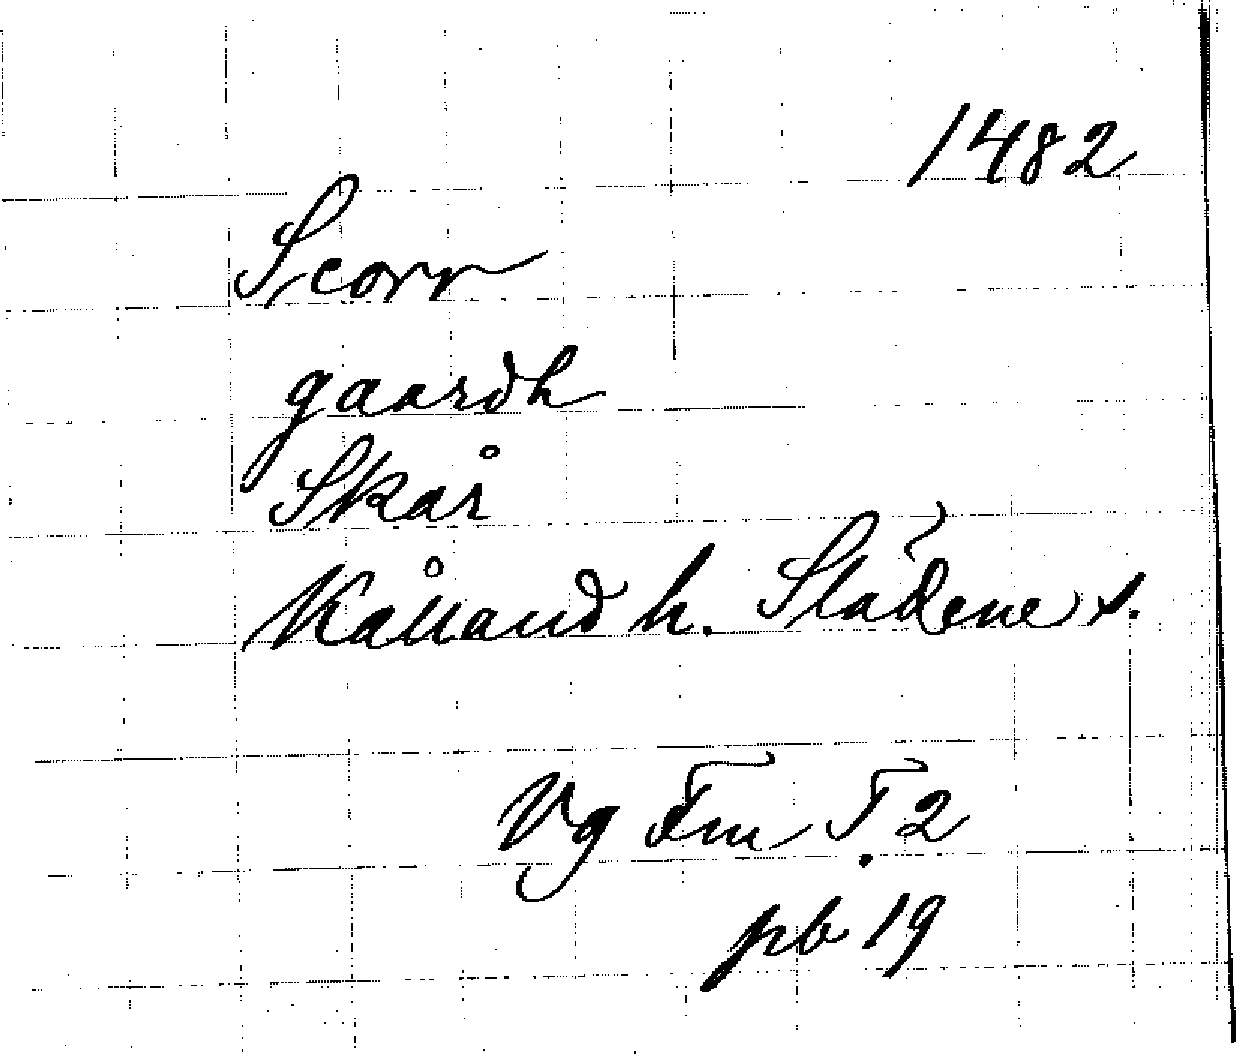 1482
Scorr
gaardh
Skår
Kålland h. Slädene s.
Vg Fm T. 2
pb 19